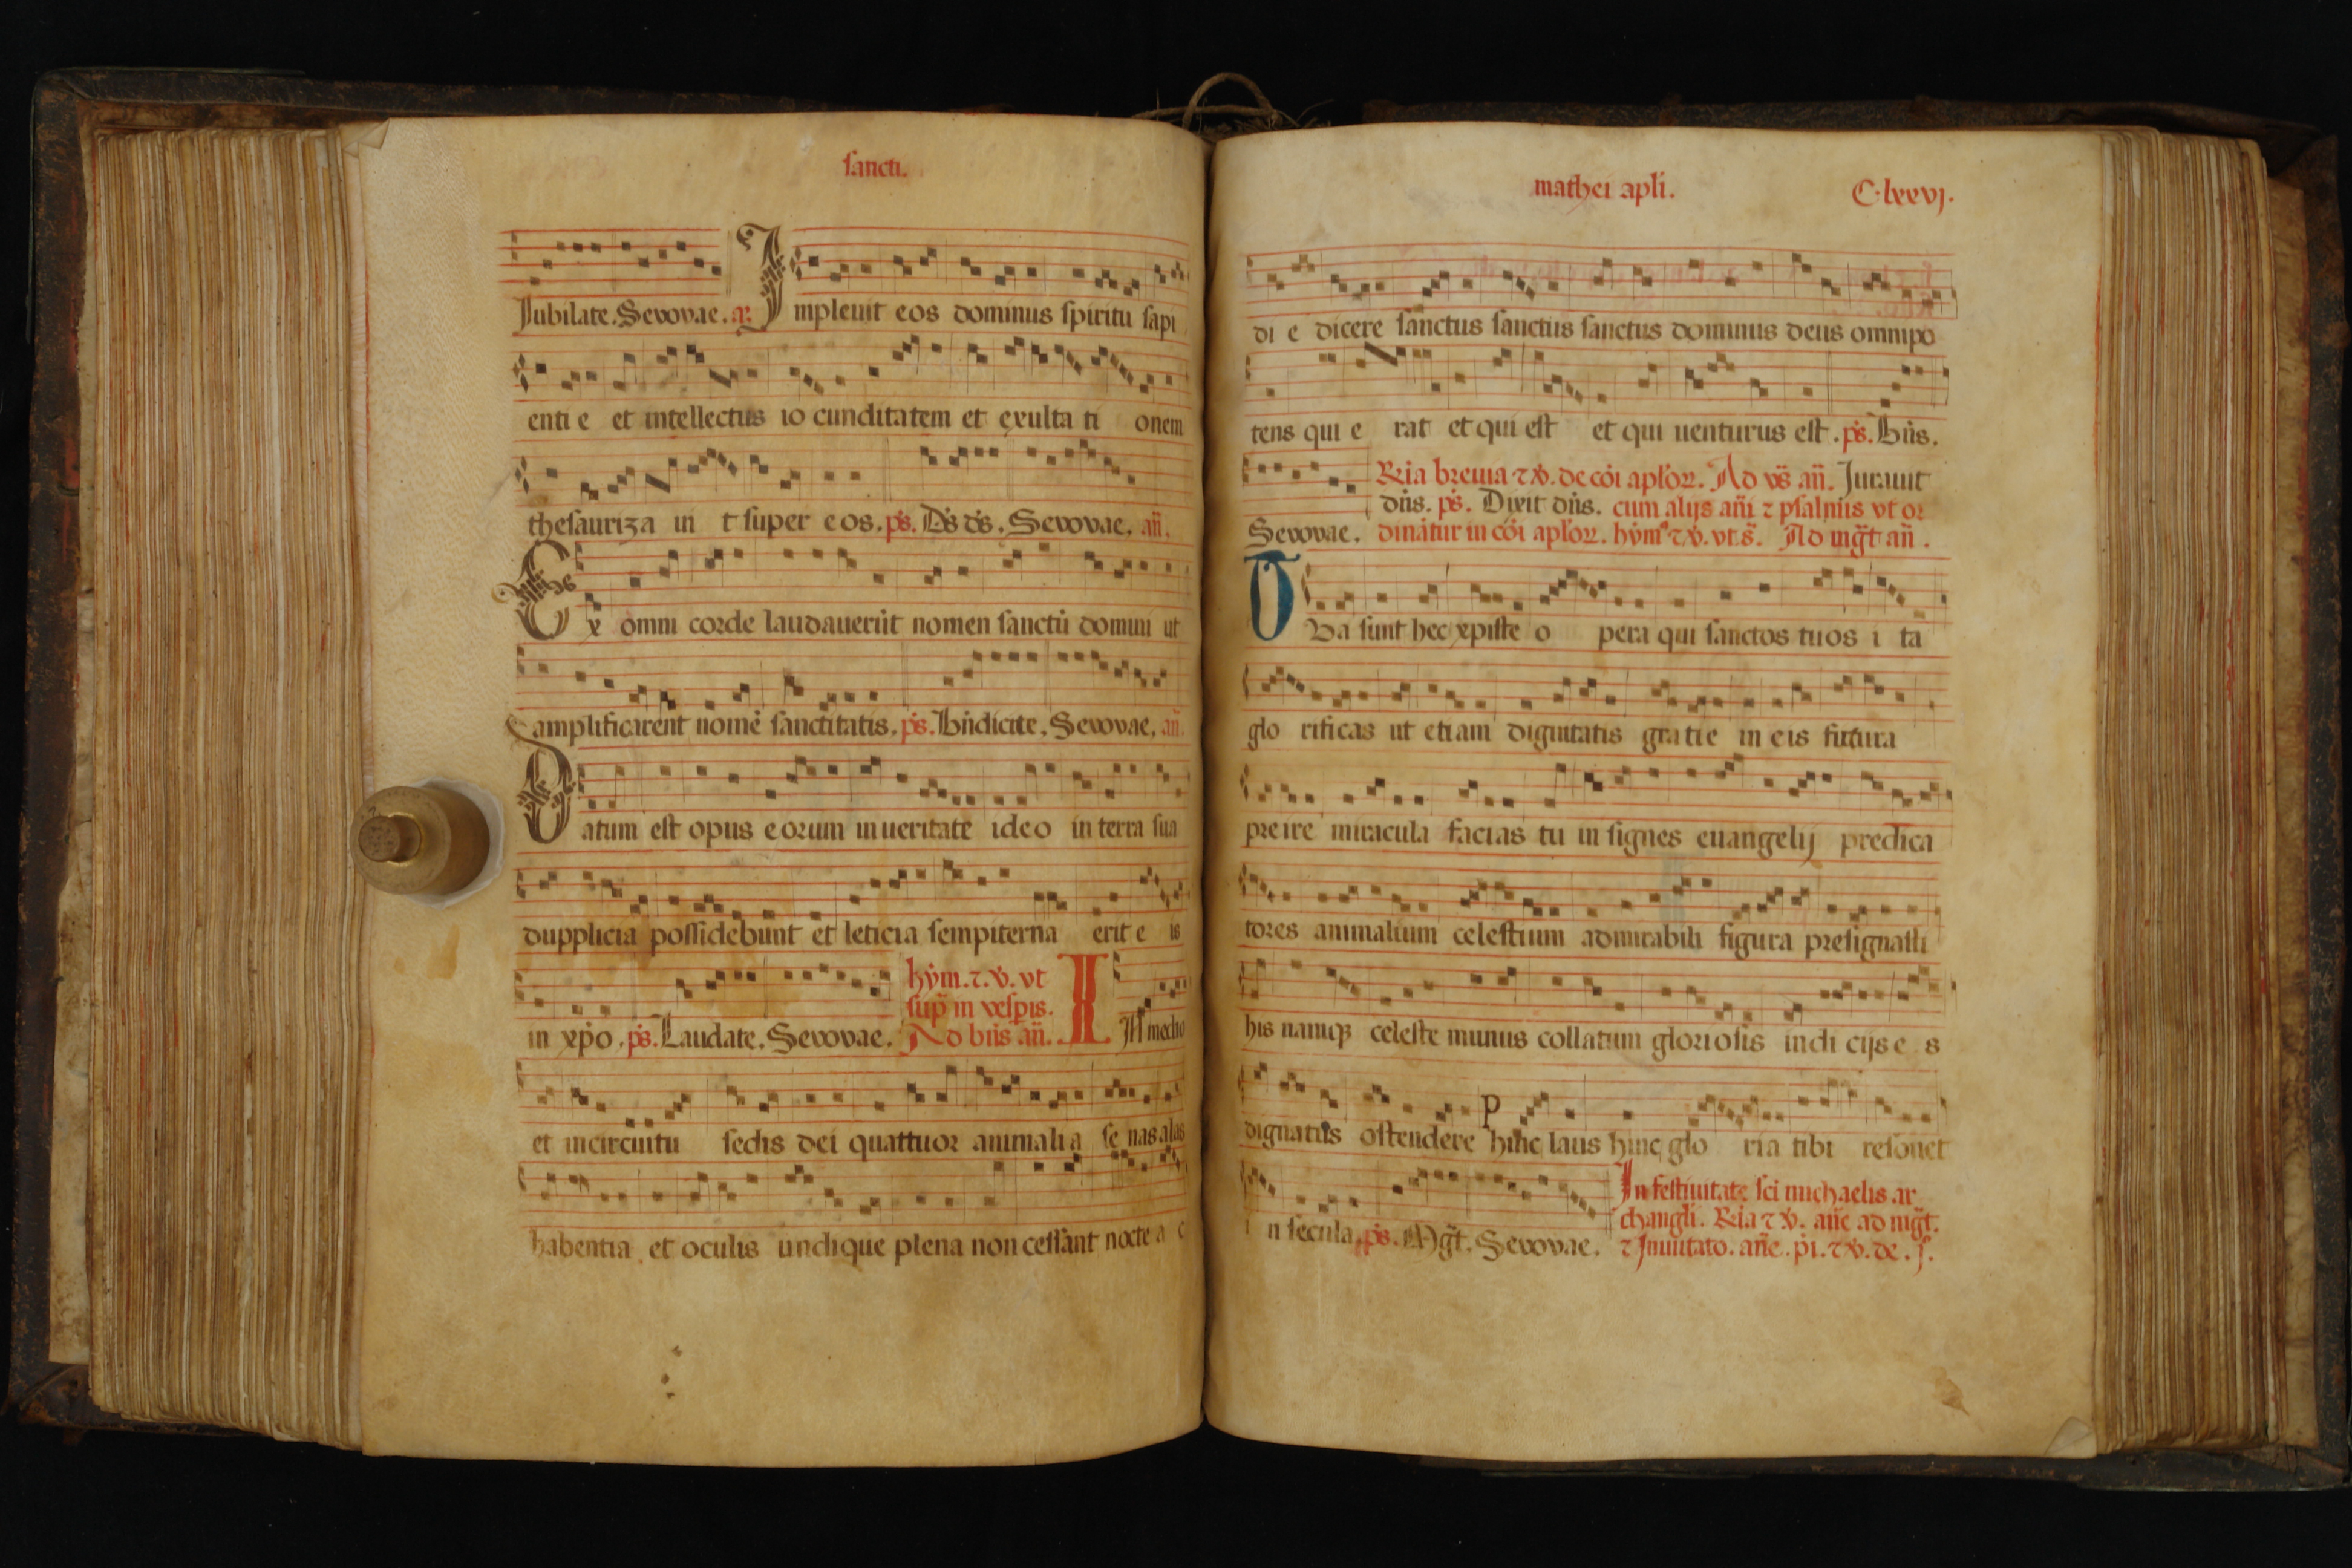 sancti.
Jubilate. Sevovae. añ. Jmpleuit eos dominus spiritu sapi
enti e et intellectus io cunditatem et exulta ti onem
thesauriza ui t super e os. ps. Ds ds. Sevovae. añ.
Ex omni corde laudauerūt nomen sanctū domini ut
amplificarent nomē sanctitatis. ps. Bñdicite. Sevovae. añ.
Datum est opus eorum in ueritate ideo in terra sua
dupplicia possidebunt et leticia sempiterna erit e is
in xp̄o. ps. Laudate. Sevovae.
hȳm. ⁊. v̄. vt
sup̄ in vesp̄is.
Ad bñs añ. IN medio
et in circuitu sedis dei quattuor animalia senas alas
habentia et oculis undique plena non cessant nocte a c
mathei apli. C·lxxvj.
di e dicere sanctus sanctus sanctus dominus deus omnipo
tens qui e rat et qui est et qui uenturus est. ps. Bñs.
Rīa breuia ⁊ v̄. de cōi apl'oꝝ. Ad vs̄ añ. Jurauit
dñs. ps. Dixit dñs. cum alijs añi ⁊ psalmis vt or
Sevovae. dinātur in cōi apl'oꝝ. hȳmꝰ ⁊ v̄. vt s̄. Ad mḡt añ.
OUa sunt hec xpiste o pera qui sanctos tuos i ta
glo rificas ut etiam dignitatis gratie in eis futura
preire miracula facias tu insignes euangelij predica
tores animalium celestium admirabili figura presignasti
his namqꝫ celeste munus collatum gloriosis indi cijs e s
dignatus ostendere P hinc laus hinc glo ria tibi resonet
i n secula. ps. Mḡt. Sevovae.
Jn festiuitate sci michaelis ar
changli. Rīa ⁊ v̄. añe ad mḡt.
⁊ Jnuitato. añe. pi. ⁊ v̄. de. j.